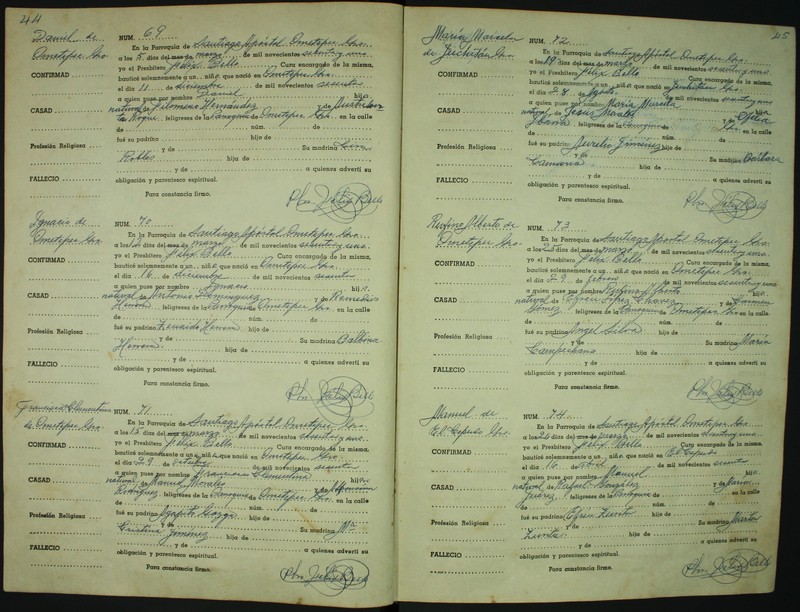 44
Daniel de
Ometepec Gro.
CONFIRMAD
CASAD
Profesión Religiosa
FALLECIO
NUM. 69
En la Parroquia de Santiago Apóstol Ometepec Gro.
a los 5 días del mes de marzo de mil novecientos sesenta y uno
yo el Presbítero Félix Bello Cura encargado de la misma,
bauticé solemnemente a un niño que nació en Ometepec Gro.
el día 11 de diciembre de mil novecientos sesenta
a quien puse por nombre Daniel hijo
natural de Filomeno Hernández y de
feligreses de la Parroquia de Ometepec Gro. en la calle
de núm. de
fué su padrino hijo de
y de Su madrina
Robles hija de
y de a quienes advertí su
obligación y parentesco espiritual.
Para constancia firmo.
Pbro. Félix Bello
Ignacio de
Ometepec Gro.
CONFIRMAD
CASAD
Profesión Religiosa
FALLECIO
NUM. 70
En la Parroquia de Santiago Apóstol Ometepec Gro.
a los 12 días del mes de marzo de mil novecientos sesenta y uno
yo el Presbítero Félix Bello Cura encargado de la misma,
bauticé solemnemente a un niño que nació en Ometepec Gro.
el día 16 de diciembre de mil novecientos sesenta
a quien puse por nombre Ignacio hijo
natural de Antonio Domínguez y de Remedios
Herrera feligreses de la Parroquia de Ometepec Gro. en la calle
de núm. de
fué su padrino Herrera hijo de
y de Su madrina Balbina
Herrera hija de
y de a quienes advertí su
obligación y parentesco espiritual.
Para constancia firmo.
Pbro. Félix Bello
Francisca Clementina
de Ometepec Gro.
CONFIRMAD
CASAD
Profesión Religiosa
FALLECIO
NUM. 71
En la Parroquia de Santiago Apóstol Ometepec Gro.
a los 13 días del mes de marzo de mil novecientos sesenta y uno
yo el Presbítero Félix Bello Cura encargado de la misma,
bauticé solemnemente a un niña que nació en Ometepec Gro.
el día 29 de octubre de mil novecientos sesenta
a quien puse por nombre Francisca Clementina hija
natural de Manuel Morales y de
Rodríguez feligreses de la Parroquia de Ometepec Gro. en la calle
de núm. de
fué su padrino Agapito hijo de
y de Su madrina Ma
Cristina Jiménez hija de
y de a quienes advertí su
obligación y parentesco espiritual.
Para constancia firmo.
Pbro. Félix Bello
45
María Marcela
de Juchitán Gro.
CONFIRMAD
CASAD
Profesión Religiosa
FALLECIO
NUM. 72
En la Parroquia de Santiago Apóstol Ometepec Gro.
a los 19 días del mes de marzo de mil novecientos sesenta y uno
yo el Presbítero Félix Bello Cura encargado de la misma,
bauticé solemnemente a un niña que nació en Juchitán Gro.
el día 28 de de mil novecientos
a quien puse por nombre María Marcela hija
natural de Jesús Morales y de Ofelia
feligreses de la Parroquia de Gro. en la calle
de núm. de
fué su padrino Aurelio Jiménez hijo de
y de Su madrina Bárbara
Carmona hija de
y de a quienes advertí su
obligación y parentesco espiritual.
Para constancia firmo.
Pbro. Félix Bello
Rufino Alberto de
Ometepec Gro.
CONFIRMAD
CASAD
Profesión Religiosa
FALLECIO
NUM. 73
En la Parroquia de Santiago Apóstol Ometepec Gro.
a los 25 días del mes de marzo de mil novecientos sesenta y uno
yo el Presbítero Félix Bello Cura encargado de la misma,
bauticé solemnemente a un niño que nació en Ometepec Gro.
el día 27 de febrero de mil novecientos sesenta y uno
a quien puse por nombre Rufino Alberto hijo
natural de Efrén López Chávez y de Carmen
Gómez feligreses de la Parroquia de Ometepec Gro. en la calle
de núm. de
fué su padrino Angel Silva hijo de
y de Su madrina María
Campuzano hija de
y de a quienes advertí su
obligación y parentesco espiritual.
Para constancia firmo.
Pbro. Félix Bello
Manuel de
El Capulín Gro.
CONFIRMAD
CASAD
Profesión Religiosa
FALLECIO
NUM. 74
En la Parroquia de Santiago Apóstol Ometepec Gro.
a los 26 días del mes de marzo de mil novecientos sesenta y uno
yo el Presbítero Félix Bello Cura encargado de la misma,
bauticé solemnemente a un niño que nació en El
el día 16 de abril de mil novecientos sesenta
a quien puse por nombre Manuel hijo
natural de Rafael González y de
Juárez feligreses de la Parroquia de en la calle
de núm. de
fué su padrino Efrén Zurita hijo de
y de Su madrina
Zurita hija de
y de a quienes advertí su
obligación y parentesco espiritual.
Para constancia firmo.
Pbro. Félix Bello